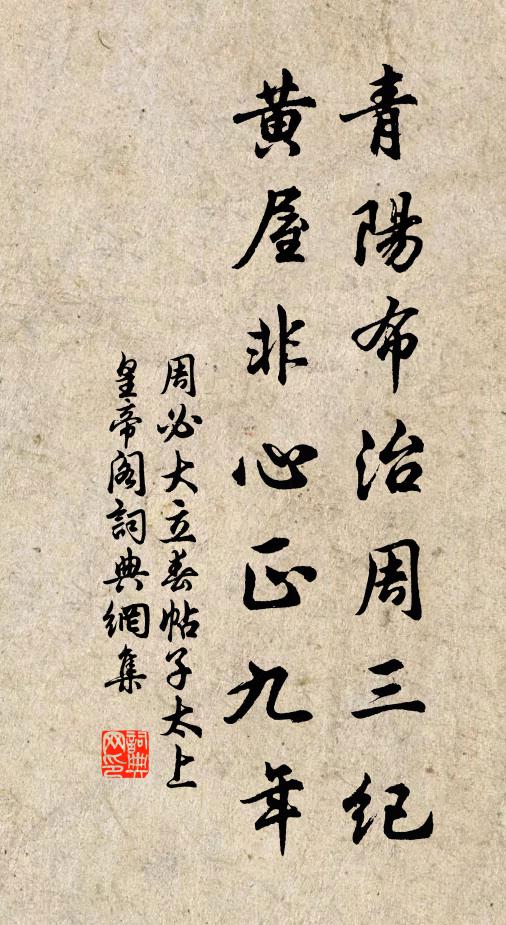 青陽布治周三紀
黃屋非心正九年
周必大立春帖子太上
皇帝閣詞典網集
詞典網印